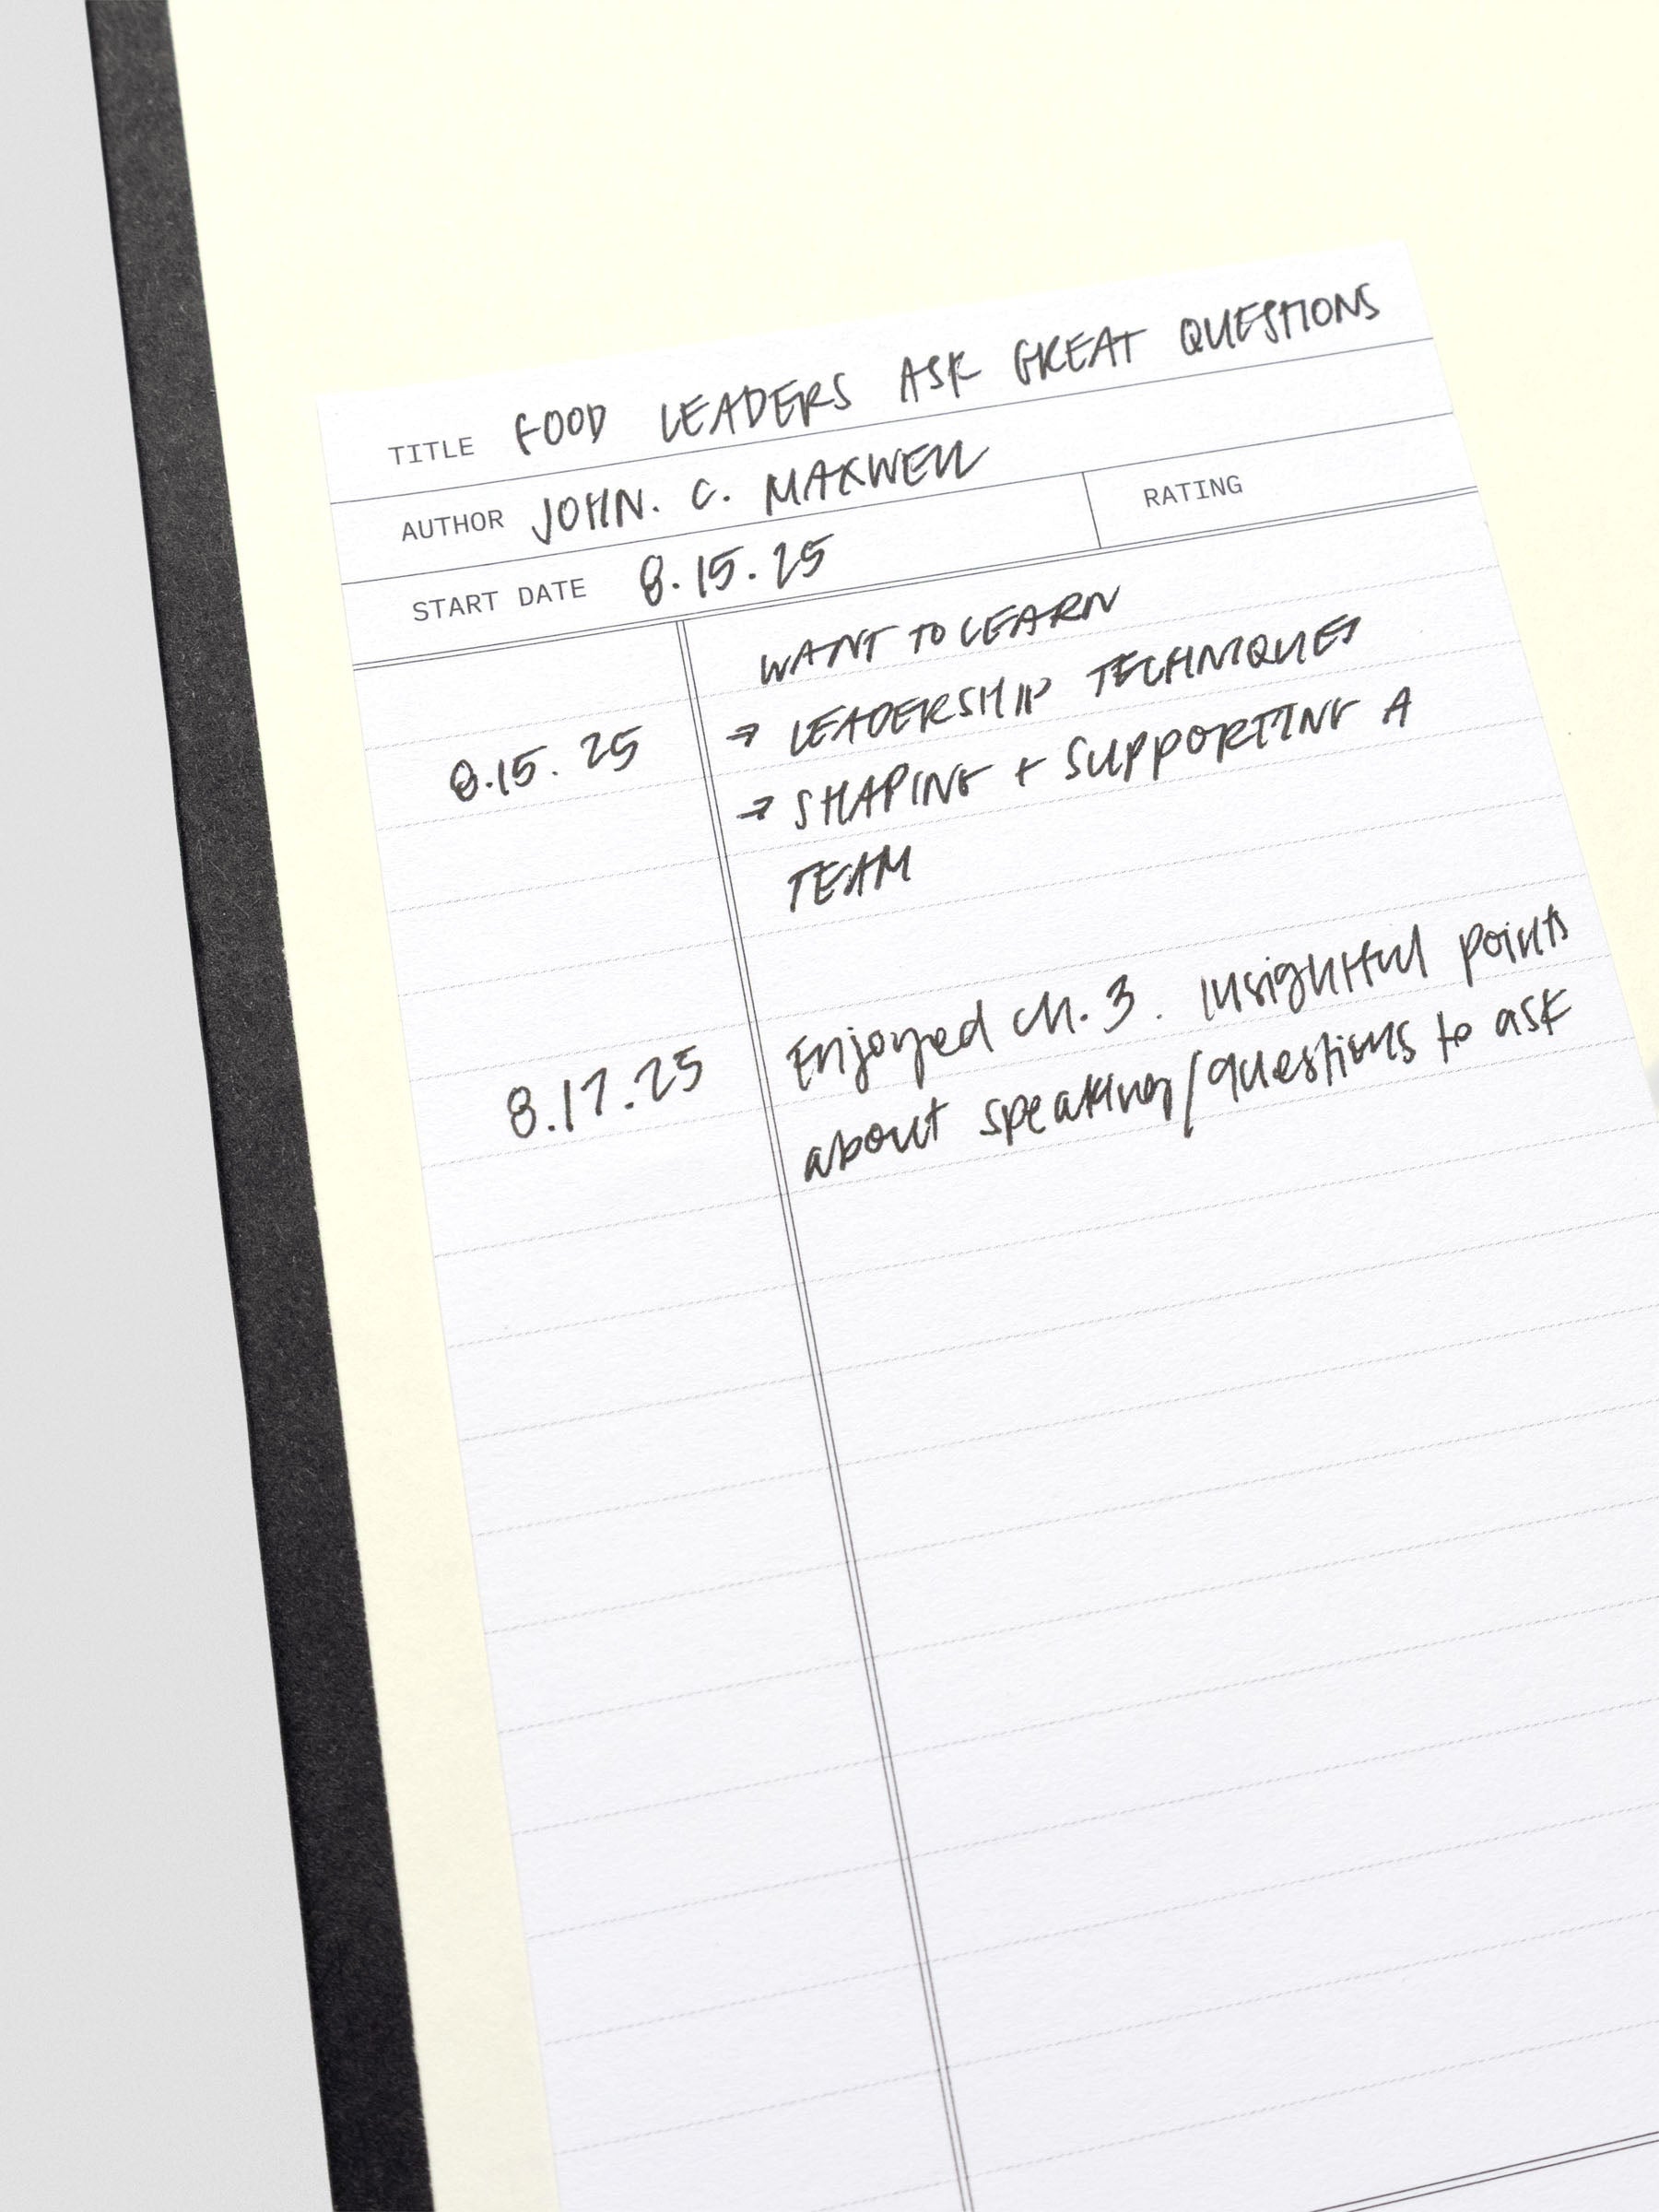 TITLE GOOD LEADERS ASK GREAT QUESTIONS
AUTHOR JOHN. C. MAXWELL
START DATE 8.15.25 RATING
WANT TO LEARN
8.15.25 → LEADERSHIP TECHNIQUES
→ SHAPING + SUPPORTING A
TEAM
8.17.25 Enjoyed ch. 3. Insightful points
about speaking/questions to ask